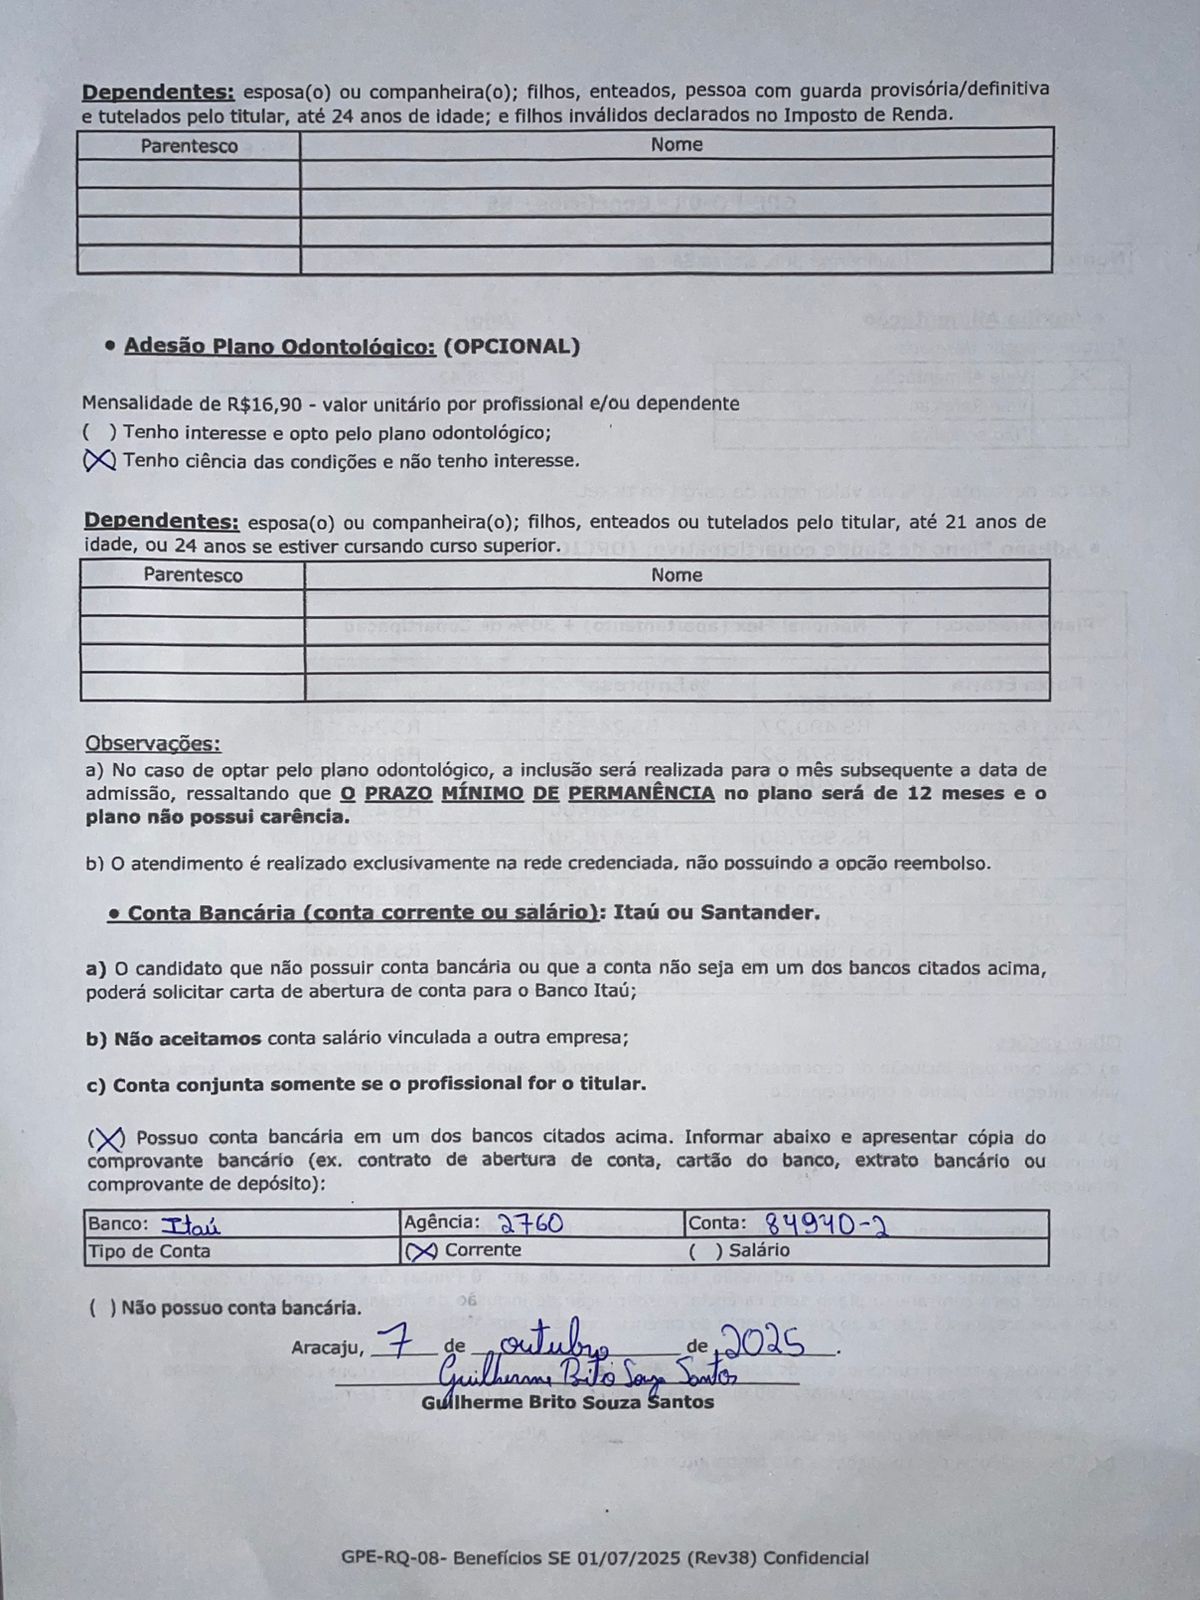 Dependentes: esposa(o) ou companheira(o); filhos, enteados, pessoa com guarda provisória/definitiva
e tutelados pelo titular, até 24 anos de idade; e filhos inválidos declarados no Imposto de Renda.
Parentesco Nome
• Adesão Plano Odontológico: (OPCIONAL)
Mensalidade de R$16,90 - valor unitário por profissional e/ou dependente
( ) Tenho interesse e opto pelo plano odontológico;
(X) Tenho ciência das condições e não tenho interesse.
Dependentes: esposa(o) ou companheira(o); filhos, enteados ou tutelados pelo titular, até 21 anos de
idade, ou 24 anos se estiver cursando curso superior.
Parentesco Nome
Observações:
a) No caso de optar pelo plano odontológico, a inclusão será realizada para o mês subsequente a data de
admissão, ressaltando que O PRAZO MÍNIMO DE PERMANÊNCIA no plano será de 12 meses e o
plano não possui carência.
b) O atendimento é realizado exclusivamente na rede credenciada, não possuindo a opção reembolso.
• Conta Bancária (conta corrente ou salário): Itaú ou Santander.
a) O candidato que não possuir conta bancária ou que a conta não seja em um dos bancos citados acima,
poderá solicitar carta de abertura de conta para o Banco Itaú;
b) Não aceitamos conta salário vinculada a outra empresa;
c) Conta conjunta somente se o profissional for o titular.
(X) Possuo conta bancária em um dos bancos citados acima. Informar abaixo e apresentar cópia do
comprovante bancário (ex. contrato de abertura de conta, cartão do banco, extrato bancário ou
comprovante de depósito):
Banco: Itaú Agência: 2760 Conta: 84940-2
Tipo de Conta (X) Corrente ( ) Salário
( ) Não possuo conta bancária.
Aracaju, 7 de outubro de 2025.
Guilherme Brito Souza Santos
Guilherme Brito Souza Santos
GPE-RQ-08- Benefícios SE 01/07/2025 (Rev38) Confidencial